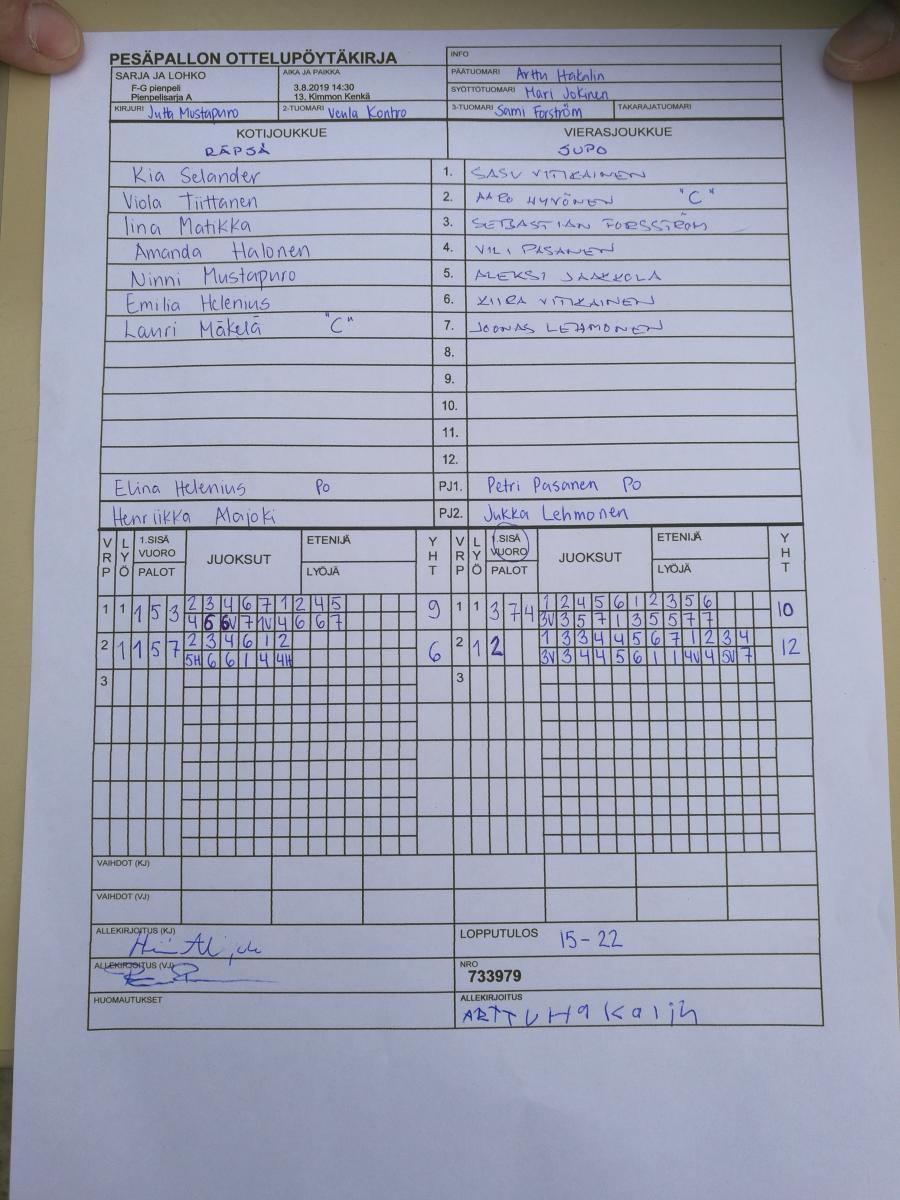 PESÄPALLON OTTELUPÖYTÄKIRJA
INFO
SARJA JA LOHKO
F-G pienpeli
Pienpelisarja A
AIKA JA PAIKKA
3.8.2019 14:30
13. Kimmon Kenkä
PÄÄTUOMARI Arttu Hakalin
SYÖTTÖTUOMARI Mari Jokinen
KIRJURI Jutta Mustapuro 2-TUOMARI Venla Kontro 3-TUOMARI Sami Forström TAKARAJATUOMARI
KOTIJOUKKUE VIERASJOUKKUE
RÄPSÄ JUPO
Kia Selander 1. SASU VITIKAINEN
Viola Tiittanen 2. AARO HYVÖNEN "C"
Iina Matikka 3. SEBASTIAN FORSSTRÖM
Amanda Halonen 4. VILI PASANEN
Ninni Mustapuro 5. ALEKSI JAAKKOLA
Emilia Helenius 6. KIIRA VITIKAINEN
Lauri Mäkelä "C" 7. JOONAS LEHMONEN
8.
9.
10.
11.
12.
Elina Helenius Po PJ1. Petri Pasanen Po
Henriikka Alajoki PJ2. Jukka Lehmonen
VRP LYÖ 1.SISÄ VUORO PALOT JUOKSUT ETENIJÄ LYÖJÄ YHT VRP LYÖ 1.SISÄ VUORO PALOT JUOKSUT ETENIJÄ LYÖJÄ YHT
1 1 1 5 3 2 3 4 6 7 1 2 4 5 9 1 1 3 7 4 1 2 4 5 6 1 2 3 5 6 10
4 6 6V 7 1V 4 6 6 7 3V 3 5 7 1 3 5 5 7 7
2 1 1 5 7 2 3 4 6 1 2 6 2 1 2 1 3 3 4 4 5 6 7 1 2 3 4 12
5H 6 6 1 4 4H 3V 3 4 4 5 6 1 1 4V 4 5V 7
3 3
VAIHDOT (KJ)
VAIHDOT (VJ)
ALLEKIRJOITUS (KJ) LOPPUTULOS 15-22
ALLEKIRJOITUS (VJ) NRO
733979
HUOMAUTUKSET ALLEKIRJOITUS
ARTTU Hakalin